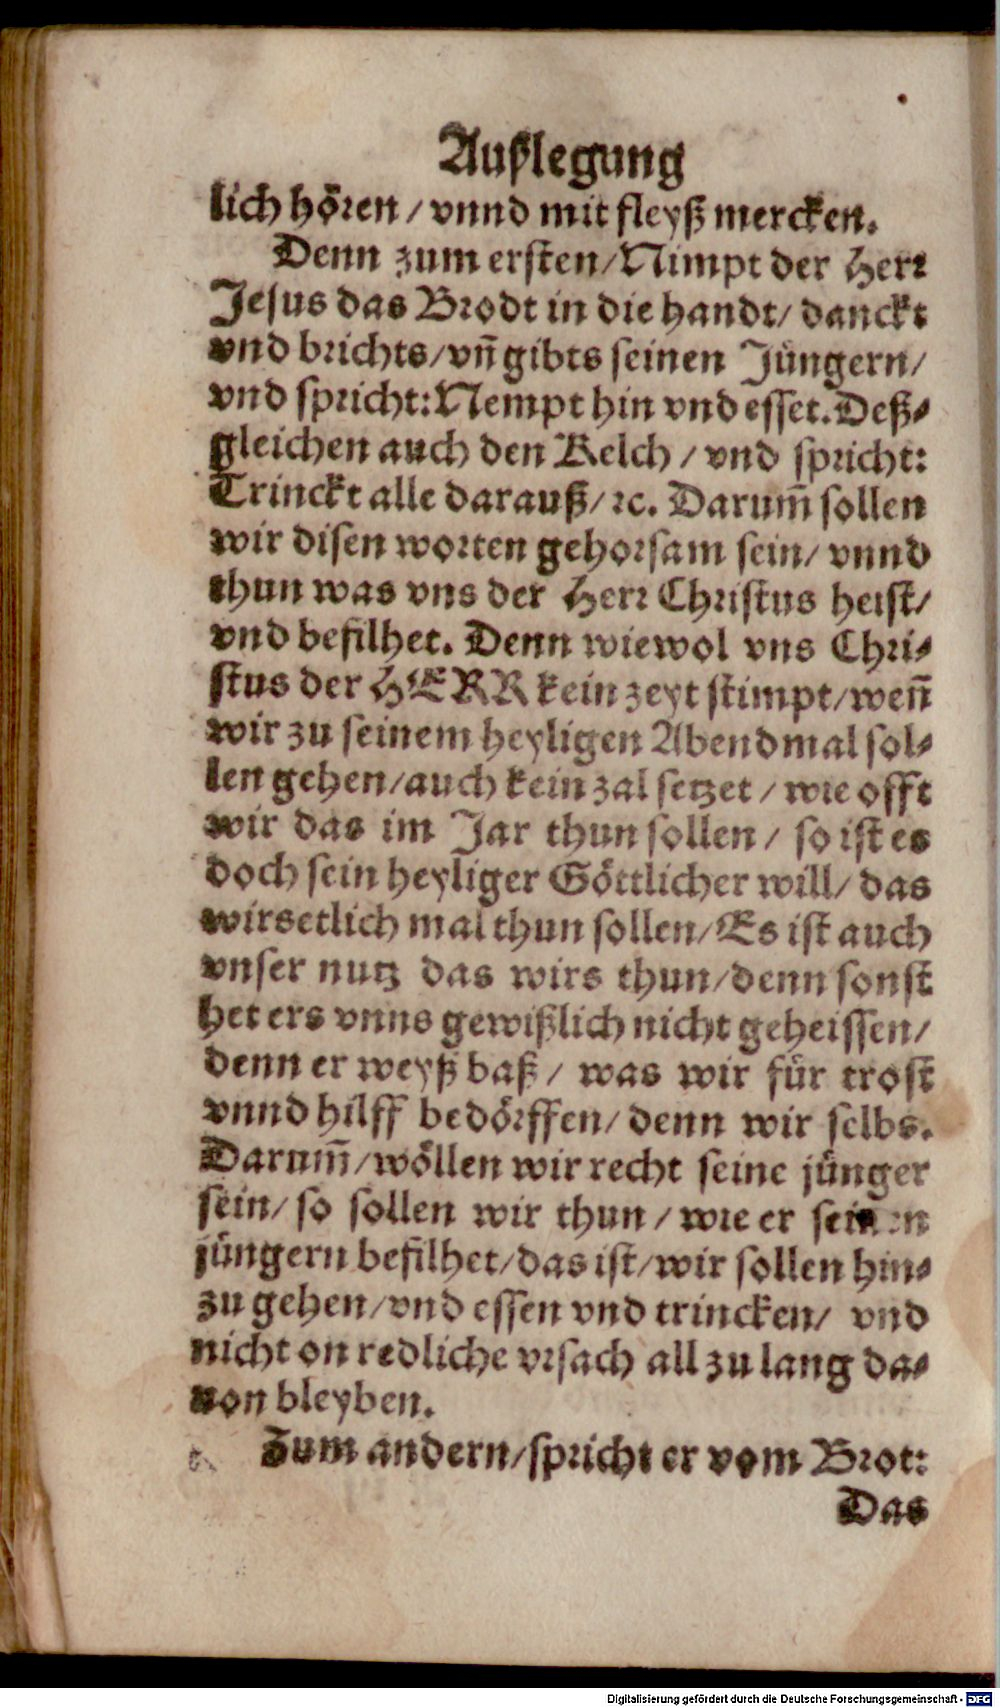 Außlegung
lich hören / vnnd mit fleyß mercken.
Denn zum ersten / Nimpt der Herr
Jesus das Brodt in die handt / danckt
vnd brichts / vñ gibts seinen Jüngern /
vnd spricht: Nempt hin vnd esset. Deß-
gleichen auch den Kelch / vnd spricht:
Trinckt alle darauß / ꝛc. Darum̃ sollen
wir disen worten gehorsam sein / vnnd
thun was vns der Herr Christus heist /
vnd befilhet. Denn wiewol vns Chri-
stus der HERR kein zeyt stimpt / weñ
wir zu seinem heyligen Abendmal sol-
len gehen / auch kein zal setzet / wie offt
wir das im Jar thun sollen / so ist es
doch sein heyliger Göttlicher will / das
wirs etlich mal thun sollen / Es ist auch
vnser nutz das wirs thun / denn sonst
het ers vnns gewißlich nicht geheissen /
denn er weyß baß / was wir für trost
vnnd hilff bedörffen / denn wir selbs.
Darum̃ / wöllen wir recht seine jünger
sein / so sollen wir thun / wie er seinen
jüngern befilhet / das ist / wir sollen hin-
zu gehen / vnd essen vnd trincken / vnd
nicht on redliche vrsach all zu lang da-
uon bleyben.
Zum andern / spricht er vom Brot:
Das
Digitalisierung gefördert durch die Deutsche Forschungsgemeinschaft - DFG